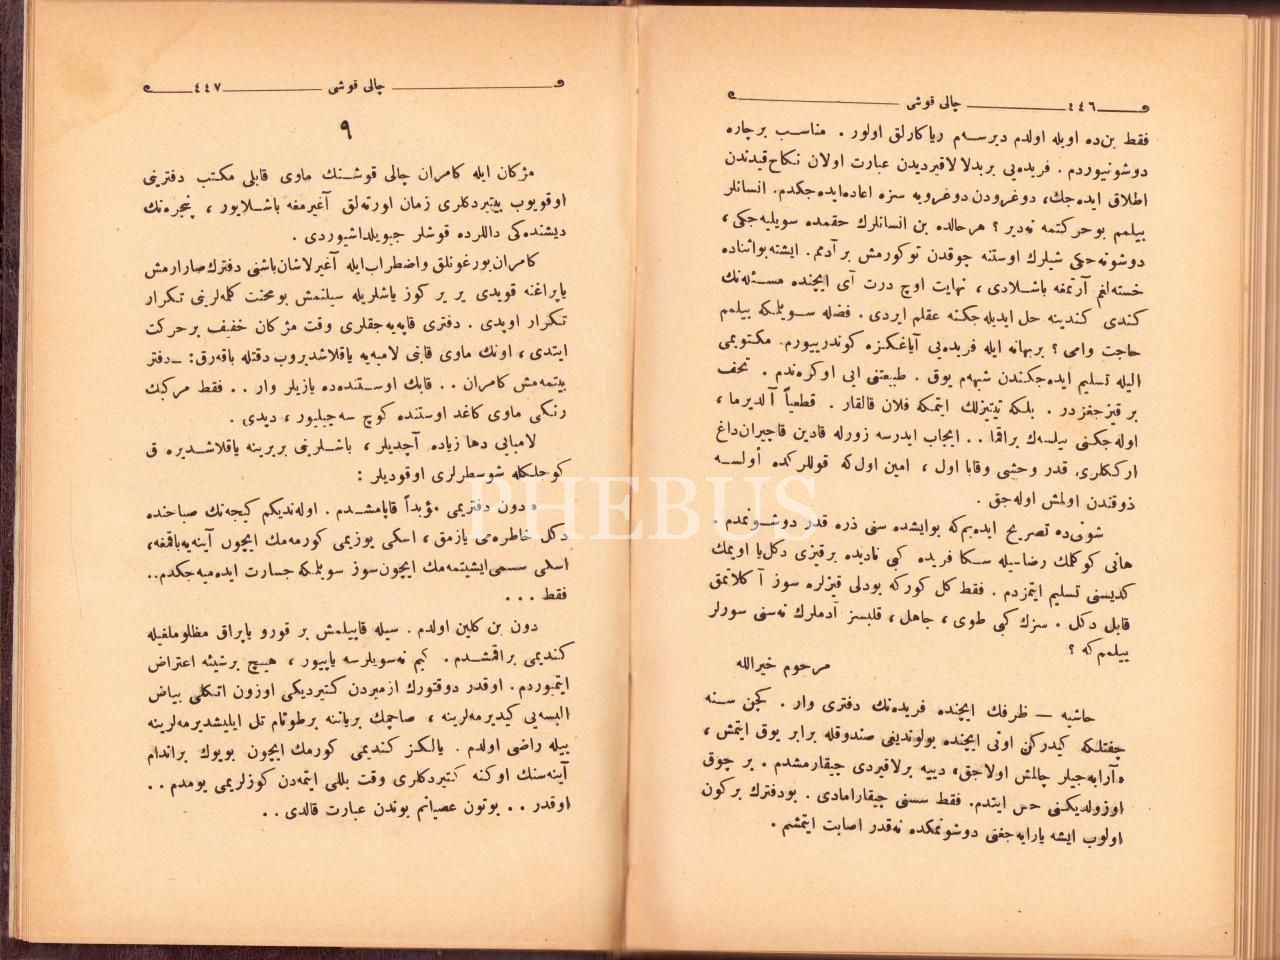 ٤٤٦ چالی قوشی
فقط بن‌ده اویله اولدم دیرسەم ریاكارلق اولور . مناسب برچاره
دوشونیوردم . فریده‌یی بربدلا لاقیردیدن عبارت اولان نكاح قیدندن
اطلاق ایده‌جك، دوغرودن دوغرویه سزه اعاده‌ایده‌جكدم. انسانلر
بیلمم بوحركتمه نه‌دیر ؟ هرحالده بن انسانلرك حقمده سویلیه‌جكی ،
دوشونه‌جكی شیلرك اوستنه چوقدن توكورمش برآدمم. ایشته‌بواثناده
خسته‌لغم آرتمغه باشلادی ، نهایت اوچ درت آی ایچنده مسئله‌نك
كندی كندینه حل ایدیله‌جكنه عقلم ایردی . فضله سویلمكه بیلمم
حاجت وامی ؟ بربهانه ایله فریده‌یی آیاغكزه كوندرییورم. مكتوبمی
الیله تسلیم ایده‌جكندن شبهه‌م یوق . طبیعتنی ایی اوكره‌ندم . تحف
بر قیزجغزدر . بلكه تیتیزلك ایتمكه فلان قالقار . قطعیاً آلدیرما ،
اوله‌جكنی بیلسه‌ك براقما . . ایجاب ایدرسه زورله قادین قاچیران‌داغ
ارككلری قدر وحشی وقابا اول ، امین اول‌كه قوللركده أولسه
ذوقندن اولمش اوله‌جق .
شونی‌ده تصریح ایده‌یم‌كه بوایشده سنی ذره قدر دوشونمدم .
هانی كوكلمك رضاسیله سكا فریده كبی نادیده برقیزی دكل‌یا اویمك
كدیسنی تسلیم ایتمزدم . فقط كل كوركه بودلی قیزلره سوز آكلاتمق
قابل دكل . سزك كبی طوی ، جاهل ، قلبسز آدملرك نه‌سنی سورلر
بیلمم‌كه ؟
مرحوم خیرالله
حاشیه — ظرفك ایچنده فریده‌نك دفتری وار . كچن سنه
چفتلكه كیدركن اوتی ایچنده بولوندیغی صندوقله برابر یوق ایتمش ،
«آرابه‌جیلر چالمش اولاجق» دییه برلاقیردی چیقارمشدم . بر چوق
اوزولدیكنی حس ایتدم. فقط سسنی چیقارامادی . بودفترك بركون
اولوب ایشه یارایه‌جغنی دوشونمكده نه‌قدر اصابت ایتمشم .
چالی قوشی ٤٤٧
٩
مژكان ایله كامران چالی قوشنك ماوی قابلی مكتب دفترینی
اوقویوب بیتیردكلری زمان اورته‌لق آغیرمغه باشلایور ، پنجره‌نك
دیشنده‌كی داللرده قوشلر جیویلداشیوردی .
كامران‌یورغونلق واضطراب‌ایله آغیرلاشان‌باشنی دفترك‌صارارمش
یاپراغنه قویدی یر یر كوز یاشلریله سیلنمش بو محنت كلمه‌لرینی تكرار
تكرار اوپدی . دفتری قاپه‌یه‌جقلری وقت مژكان خفیف برحركت
ایتدی ، اونك ماوی قابنی لامبه‌یه یاقلاشدیروب دقتله باقه‌رق: ـ دفتر
بیتمه‌مش كامران . . قابك اوستنده‌ده یازیلر وار . . فقط مركبك
رنكی ماوی كاغد اوستنده كوچ سه‌چیلیور ، دیدی .
لامبایی دها زیاده آچدیلر ، باشلرینی بربرینه یاقلاشدیره ق
كوجلكله شوسطرلری اوقودیلر :
«دون دفتریمی مؤبداً قاپامشدم . اوله‌ندیكم كیجه‌نك صباحنده
دكل خاطره‌می یازمق ، اسكی یوزیمی كورمه‌مك ایچون آینه‌یه‌باقمغه،
اسكی سسمی‌ایشیتمه‌مك ایچون‌سوز سویلمكه جسارت ایده‌میه‌جكدم..
فقط . . .
دون بن كلین اولدم . سیله قاپیلمش بر قورو یاپراق مظلوملغیله
كندیمی براقمشدم . كیم نه‌سویلرسه یاپیور ، هیچ برشیئه اعتراض
ایتمیوردم. اوقدر دوقتورك ازمیردن كتیردیكی اوزون اتكلی بیاض
البسه‌یی كیدیرمه‌لرینه ، صاچمك بریاننه برطوتام تل ایلیشدیرمه‌لرینه
بیله راضی اولدم . یالكز كندیمی كورمك ایچون بویوك براندام
آینه‌سنك اوكنه كتیردكلری وقت بللی ایتمه‌دن كوزلریمی یومدم . .
اوقدر . . بوتون عصیانم بوندن عبارت قالدی . .
PHEBUS